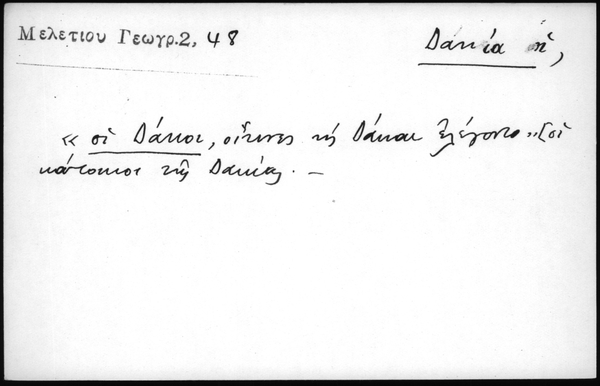 Μελετίου Γεωγρ. 2, 48
Δακία ἡ,
« οἱ Δάκοι, οἵτινες καὶ Δάκαι ἐλέγοντο » [οἱ
κάτοικοι τῆς Δακίας. —